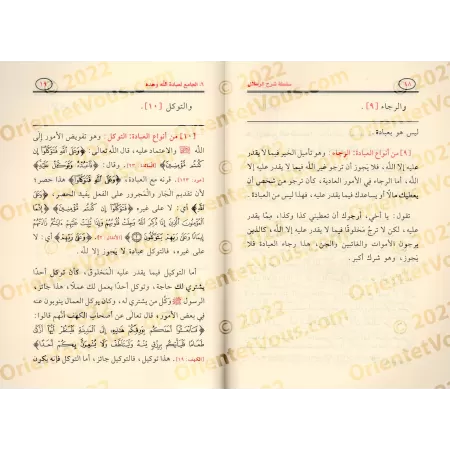 ١٨
سلسلة شرح الرسائل
والرجاء [٩] .
ليس هو بعبادة.
[٩] من أنواع العبادة: الرجاء: وهو تأميل الخير فيما لا يقدر
عليه إلا الله، فلا يجوز أن ترجو غير الله فيما لا يقدر عليه إلا
الله، أما الرجاء في الأمور العادية، كأن ترجو من شخص أن
يعطيك مالاً أو يساعدك فيما يقدر عليه، فهذا ليس من العبادة.
تقول: يا أخي، أرجوك أن تعطيني كذا وكذا، مما يقدر
عليه، لكن لا ترج مخلوقًا فيما لا يقدر عليه إلا الله، كالذين
يرجون الأموات والغائبين والجن، هذا رجاء العبادة فلا
يجوز، وهو شرك أكبر.
٨ـ الجامع لعبادة الله وحده
١٩
والتوكل [١٠] .
[١٠] من أنواع العبادة: التوكل: وهو تفويض الأمور إلى
الله والاعتماد عليه، قال الله تعالى: ﴿وَعَلَى اللَّهِ فَتَوَكَّلُوا إِن
كُنتُم مُّؤْمِنِينَ﴾ [المائدة: ٢٣]، وقال: ﴿فَاعْبُدْهُ وَتَوَكَّلْ عَلَيْهِ﴾
[هود: ١٢٣]، قرنه مع العبادة، ﴿وَعَلَى اللَّهِ فَتَوَكَّلُوا﴾ هذا حصر؛
لأن تقديم الجار والمجرور على الفعل يفيد الحصر، ﴿وَعَلَى
اللَّهِ﴾ أي: لا على غيره ﴿فَتَوَكَّلُوا إِن كُنتُم مُّؤْمِنِينَ﴾، ﴿إِنَّمَا
الْمُؤْمِنُونَ الَّذِينَ إِذَا ذُكِرَ اللَّهُ وَجِلَتْ قُلُوبُهُمْ وَإِذَا تُلِيَتْ عَلَيْهِمْ آيَاتُهُ زَادَتْهُمْ
إِيمَانًا وَعَلَى رَبِّهِمْ يَتَوَكَّلُونَ﴾ [الأنفال: ٢]، ﴿وَعَلَى رَبِّهِمْ﴾ أي: لا
على غيره، فالتوكل عبادة لا يجوز إلا لله.
أما التوكيل فيما يقدر عليه المخلوق، كأن توكل أحدًا
يشتري لك حاجة، وتوكل أحدًا يعمل لك عملًا، هذا جائز،
الرسول ﷺ وكّل من يشتري له، وكان يوكل العمال ينوبون عنه
في بعض الأمور، قال تعالى عن أصحاب الكهف أنهم قالوا:
﴿فَابْعَثُوا أَحَدَكُم بِوَرِقِكُمْ هَذِهِ إِلَى الْمَدِينَةِ فَلْيَنظُرْ أَيُّهَا أَزْكَى
طَعَامًا فَلْيَأْتِكُم بِرِزْقٍ مِّنْهُ وَلْيَتَلَطَّفْ وَلَا يُشْعِرَنَّ بِكُمْ أَحَدًا﴾
[الكهف: ١٩]، هذا توكيل، فالتوكيل جائز، أما التوكل فإنه يكون
© 2022
OrientetVous.com